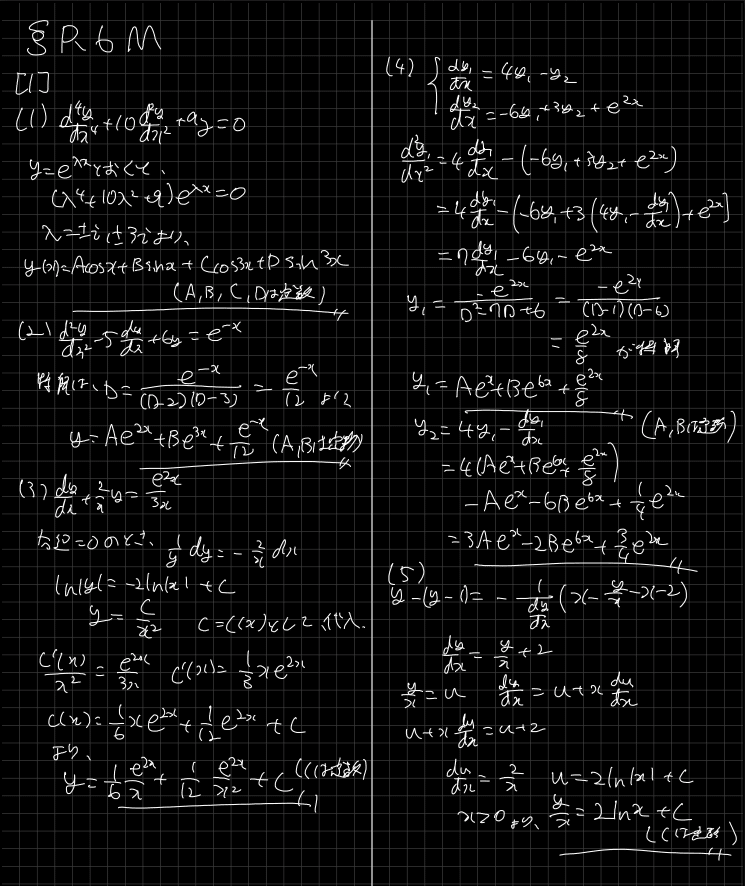 §R6M
[1]
(1) d⁴y/dx⁴+10d²y/dx²+9y=0
y=e^{λx}とおくと、
(λ⁴+10λ²+9)e^{λx}=0
λ=±i,±3iより、
y(x)=Acosx+Bsinx+Ccos3x+Dsin3x
(A,B,C,Dは定数)
(2) d²y/dx²-5dy/dx+6y=e^{-x}
特解は、D=e^{-x}/((D-2)(D-3))=e^{-x}/12 より
y=Ae^{2x}+Be^{3x}+e^{-x}/12 (A,Bは定数)
(3) dy/dx+2/x y=e^{2x}/3x
右辺=0のとき、1/y dy=-2/x dx
ln|y|=-2ln|x|+C
y=C/x² C=C(x)として代入.
C'(x)/x²=e^{2x}/3x C'(x)=1/3 xe^{2x}
C(x)=1/6 xe^{2x}+1/12 e^{2x}+C
より、
y=1/6 e^{2x}/x+1/12 e^{2x}/x²+C (Cは定数)
(4) { dy₁/dx=4y₁-y₂
dy₂/dx=-6y₁+3y₂+e^{2x}
d²y₁/dx²=4dy₁/dx-(-6y₁+3y₂+e^{2x})
=4dy₁/dx-(-6y₁+3(4y₁-dy₁/dx)+e^{2x}]
=7dy₁/dx-6y₁-e^{2x}
y₁=-e^{2x}/(D²-7D+6)=-e^{2x}/((D-1)(D-6))
=e^{2x}/8 が特解
y₁=Ae^x+Be^{6x}+e^{2x}/8
y₂=4y₁-dy₁/dx (A,Bは定数)
=4(Ae^x+Be^{6x}+e^{2x}/8)
-Ae^x-6Be^{6x}+1/4 e^{2x}
=3Ae^x-2Be^{6x}+3/4 e^{2x}
(5)
y-(y-1)=-1/(dy/dx)(x-y/x-x-2)
dy/dx=y/x+2
y/x=u dy/dx=u+x du/dx
u+x du/dx=u+2
du/dx=2/x u=2ln|x|+C
x>0より、y/x=2lnx+C
(Cは定数)